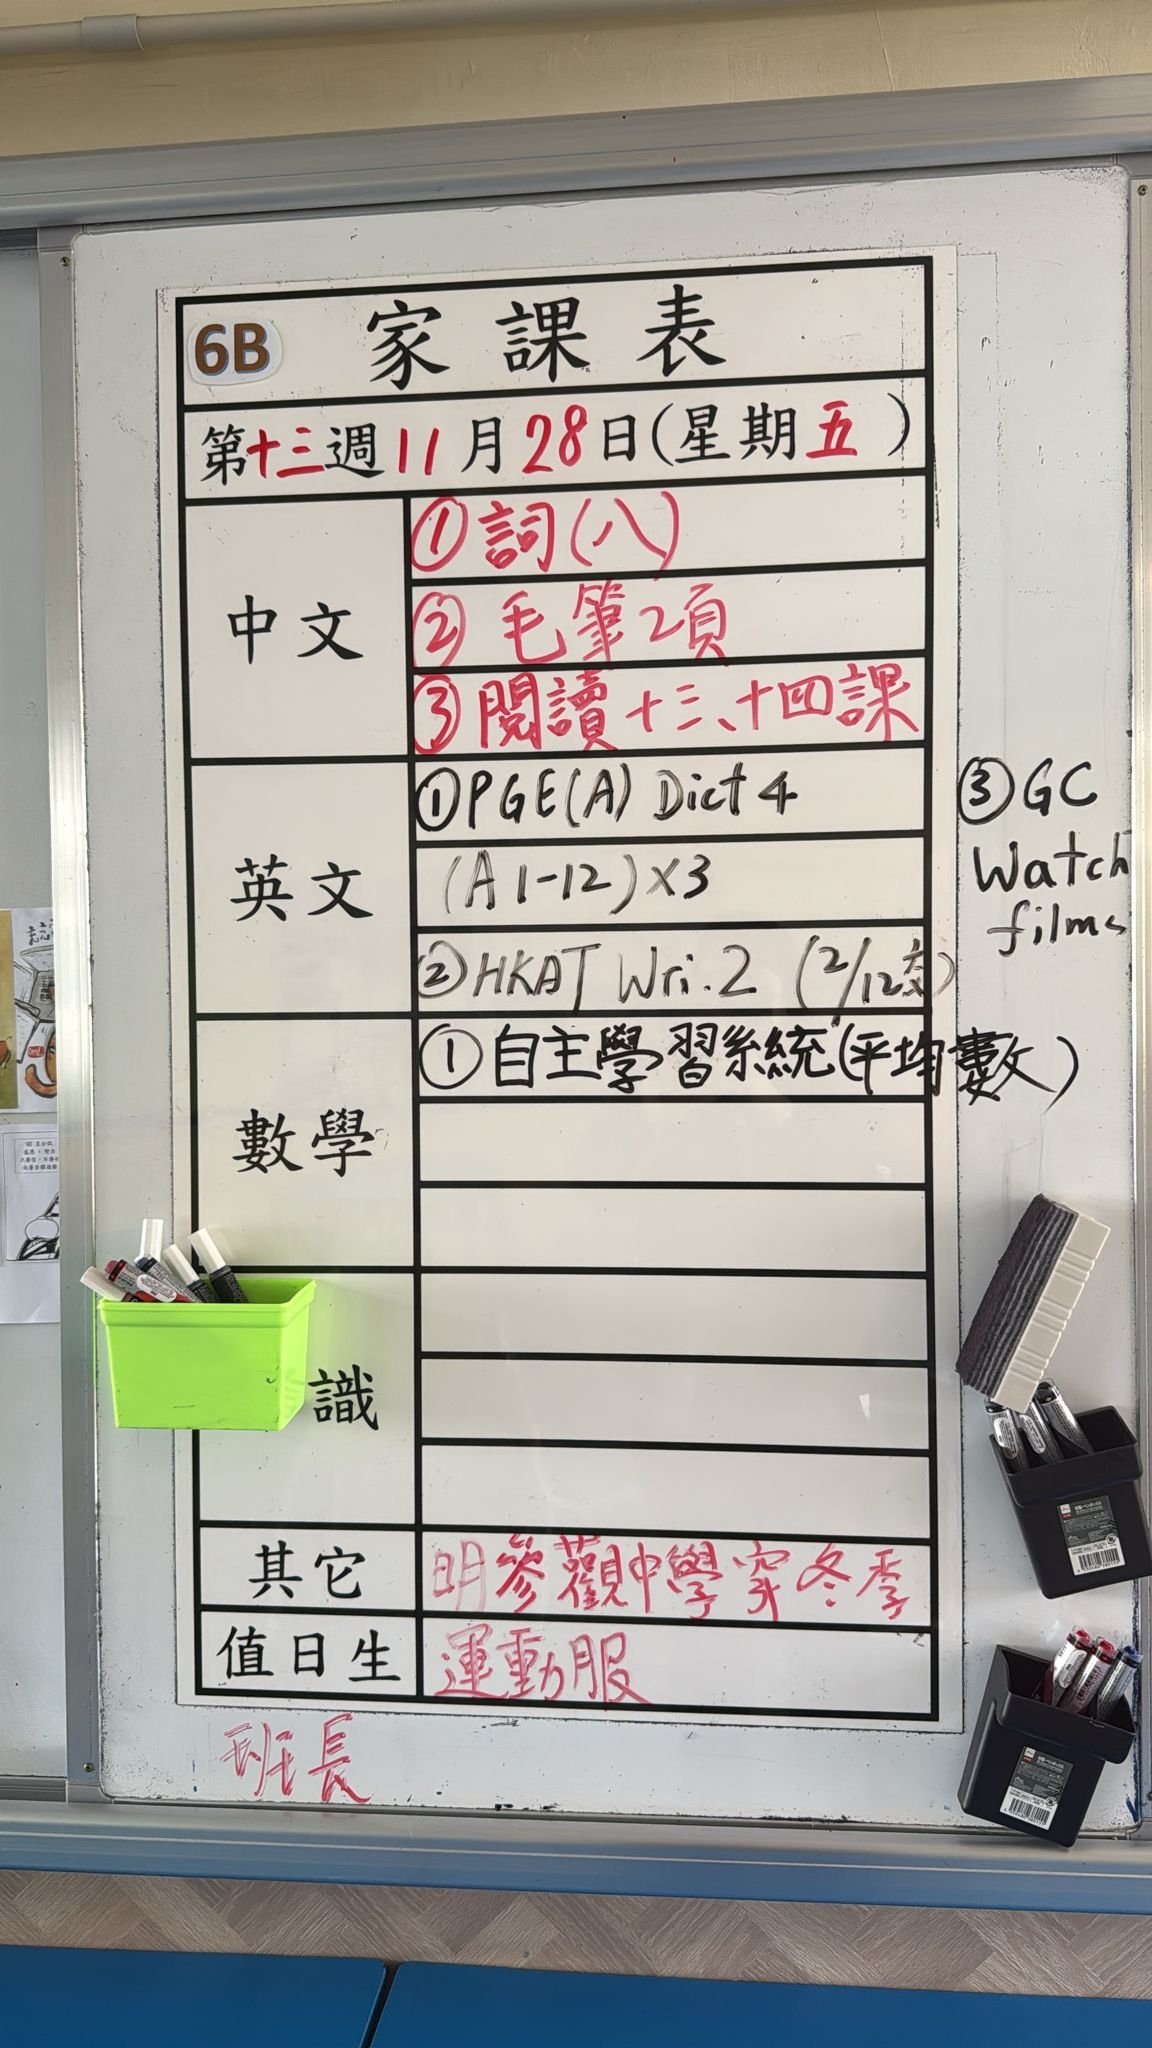 6B 家課表
第十三週11月28日(星期五)
中文
①詞(八)
②毛筆2頁
③閱讀十三、十四課
英文
①PGE(A) Dict 4
(A 1-12)×3
②HKAT Wri.2 (2/12交)
③GC
Watch
films
數學
①自主學習系統(平均數)
識
其它
明參觀中學穿冬季
值日生
運動服
班長